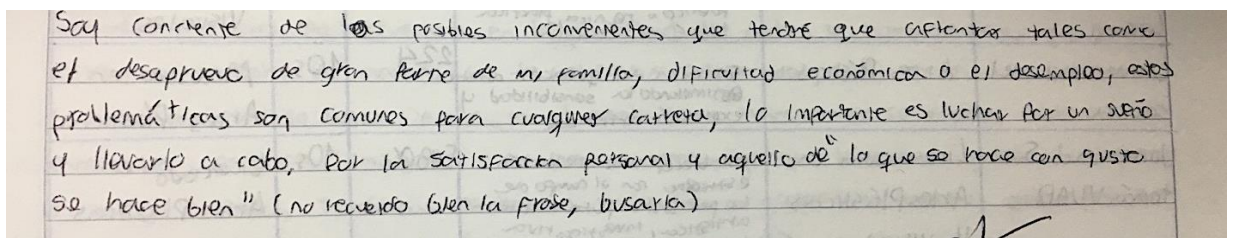 Soy conciente de los posibles inconvenientes que tendré que afrontar tales como
el desapruevo de gran parte de mi familia, dificultad económica o el desempleo, estos
problemáticas son comunes para cualquier carrera, lo importante es luchar por un sueño
y llevarlo a cabo, por la satisfacción personal y aquello de "lo que se hace con gusto
se hace bien" (no recuerdo bien la frase, busarla)